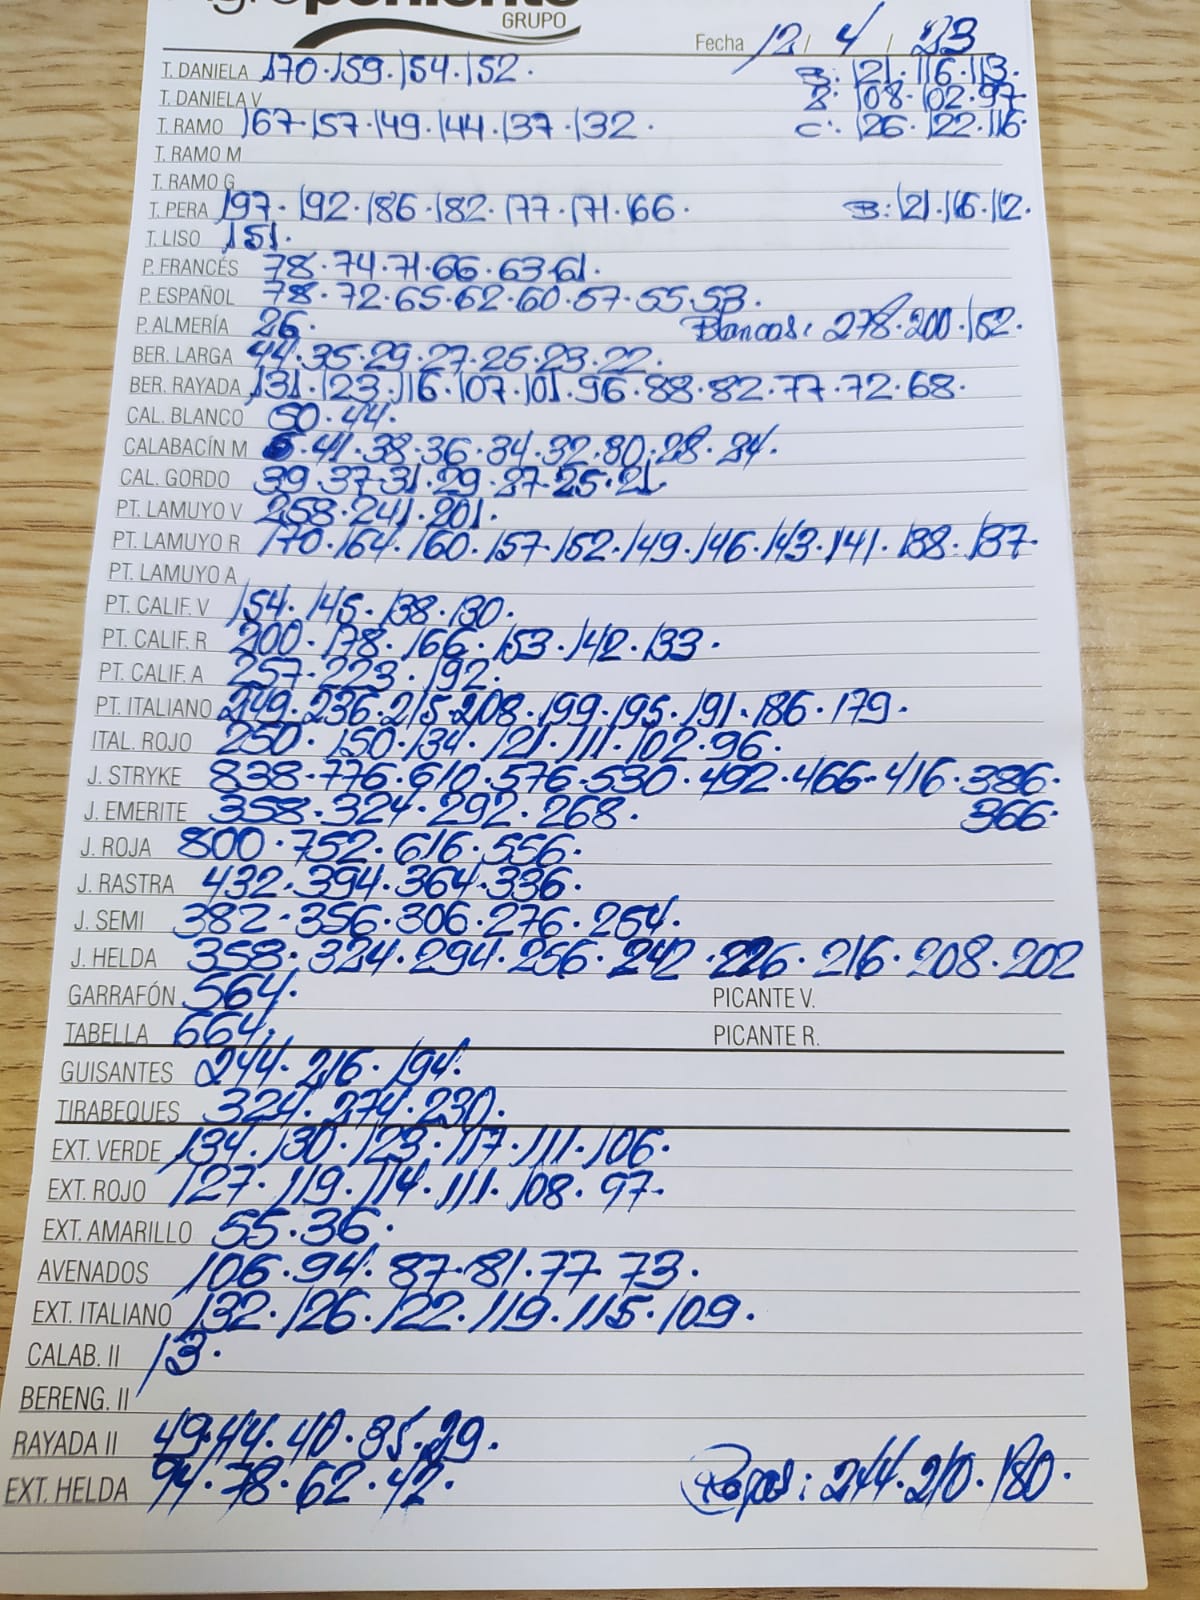 Agroponiente
GRUPO
Fecha 12/4/23
T. DANIELA 170.159.154.152. B: 121.116.113.
T. DANIELA V 8: 108.102.97.
T. RAMO 167.157.149.144.137.132. C: 126.122.116.
T. RAMO M
T. RAMO G
T. PERA 197.192.186.182.177.171.166. B: 121.116.112.
T. LISO 151.
P. FRANCÉS 78.74.71.66.63.61.
P. ESPAÑOL 78.72.65.62.60.57.55.53.
P. ALMERÍA 26. Blancas: 278.200.152.
BER. LARGA 44.35.29.27.25.23.22.
BER. RAYADA 131.123.116.107.101.96.88.82.77.72.68.
CAL. BLANCO 50.44.
CALABACÍN M .41.38.36.34.32.30.28.24.
CAL. GORDO 39.37.31.29.27.25.21
PT. LAMUYO V 258.241.201.
PT. LAMUYO R 170.164.160.157.152.149.146.143.141.138.137.
PT. LAMUYO A
PT. CALIF. V 154.145.138.130.
PT. CALIF. R 200.178.166.153.142.133.
PT. CALIF. A 257.223.192.
PT. ITALIANO 249.236.215.208.199.195.191.186.179.
ITAL. ROJO 250.150.134.121.111.102.96.
J. STRYKE 838.776.610.576.530.492.466.416.386.
J. EMERITE 358.324.292.268. 366.
J. ROJA 800.752.616.556.
J. RASTRA 432.394.364.336.
J. SEMI 382.356.306.276.254.
J. HELDA 358.324.294.256.242.226.216.208.202
GARRAFÓN 564. PICANTE V.
TABELLA 664. PICANTE R.
GUISANTES 244.216.194.
TIRABEQUES 324.274.230.
EXT. VERDE 134.130.123.117.111.106.
EXT. ROJO 127.119.114.111.108.97.
EXT. AMARILLO 55.36.
AVENADOS 106.94.87.81.77.73.
EXT. ITALIANO 132.126.122.119.115.109.
CALAB. II 13.
BERENG. II
RAYADA II 49.44.40.35.29.
EXT. HELDA 94.78.62.42. : 244.210.180.